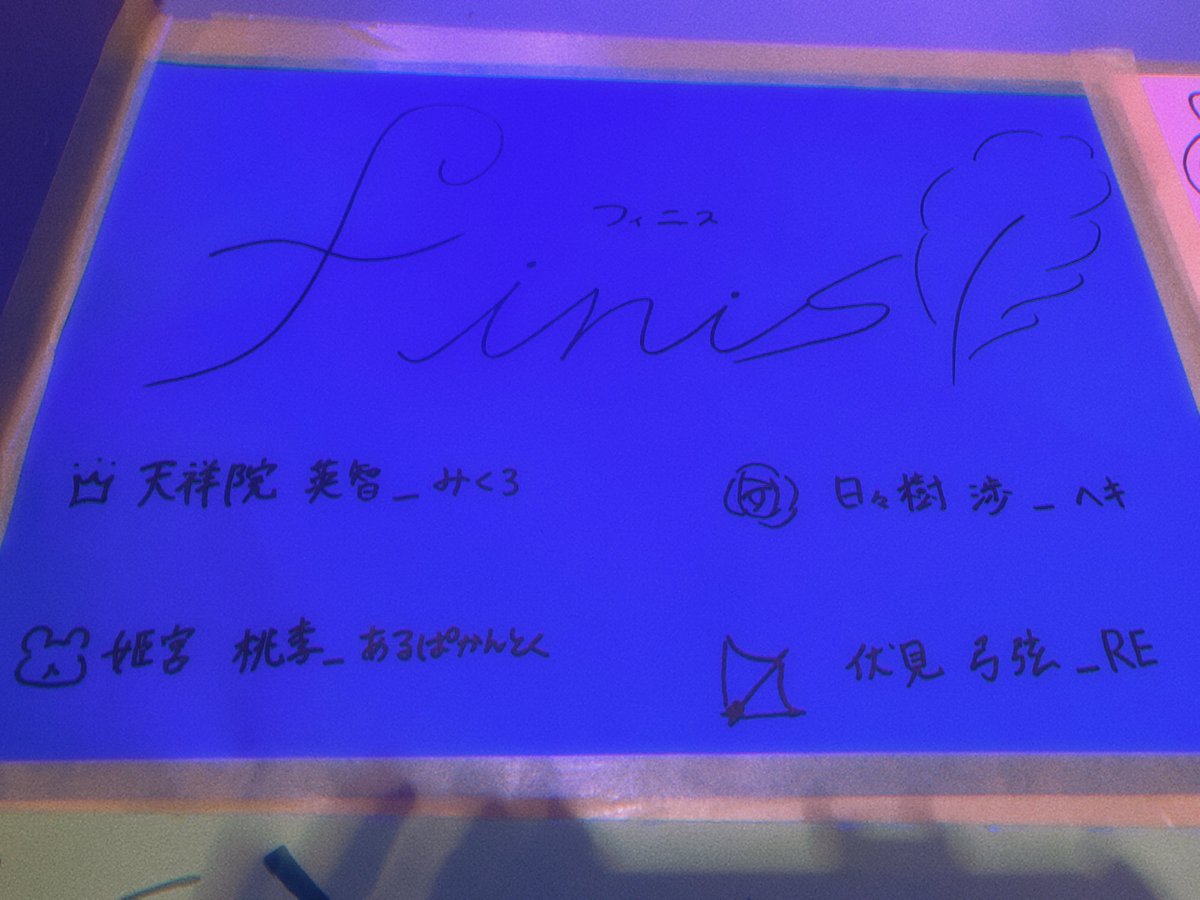 フィニス
finis
天祥院 英智_みくろ
日々樹 渉_ヘキ
姫宮 桃李_あるぱかんとく
伏見 弓弦_RE